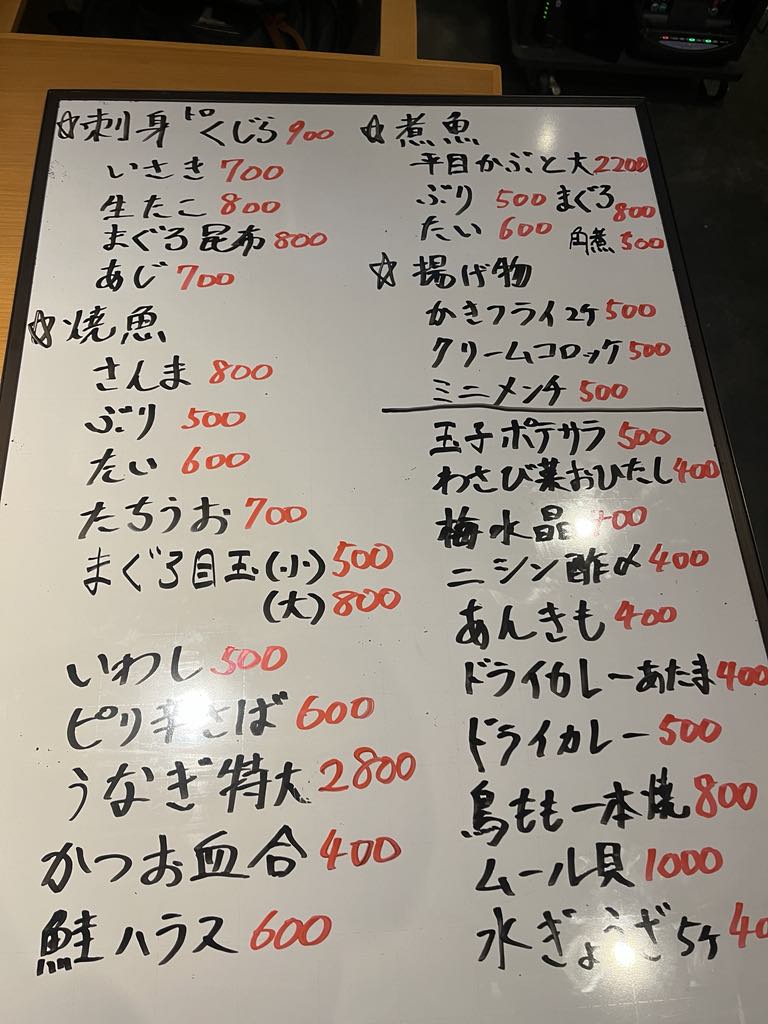 ☆刺身 トロくじら 900
いさき 700
生たこ 800
まぐろ昆布 800
あじ 700
☆焼魚
さんま 800
ぶり 500
たい 600
たちうお 700
まぐろ目玉(小) 500
(大) 800
いわし 500
ピリ辛さば 600
うなぎ特大 2800
かつお血合 400
鮭ハラス 600
☆煮魚
平目かぶと大 2200
ぶり 500 まぐろ 800
たい 600 角煮 500
☆揚げ物
かきフライ2ケ 500
クリームコロッケ 500
ミニメンチ 500
玉子ポテサラ 500
わさび菜おひたし 400
梅水晶 400
ニシン酢〆 400
あんきも 400
ドライカレーあたま 400
ドライカレー 500
鳥もも一本焼 800
ムール貝 1000
水ぎょうざ5ケ 40